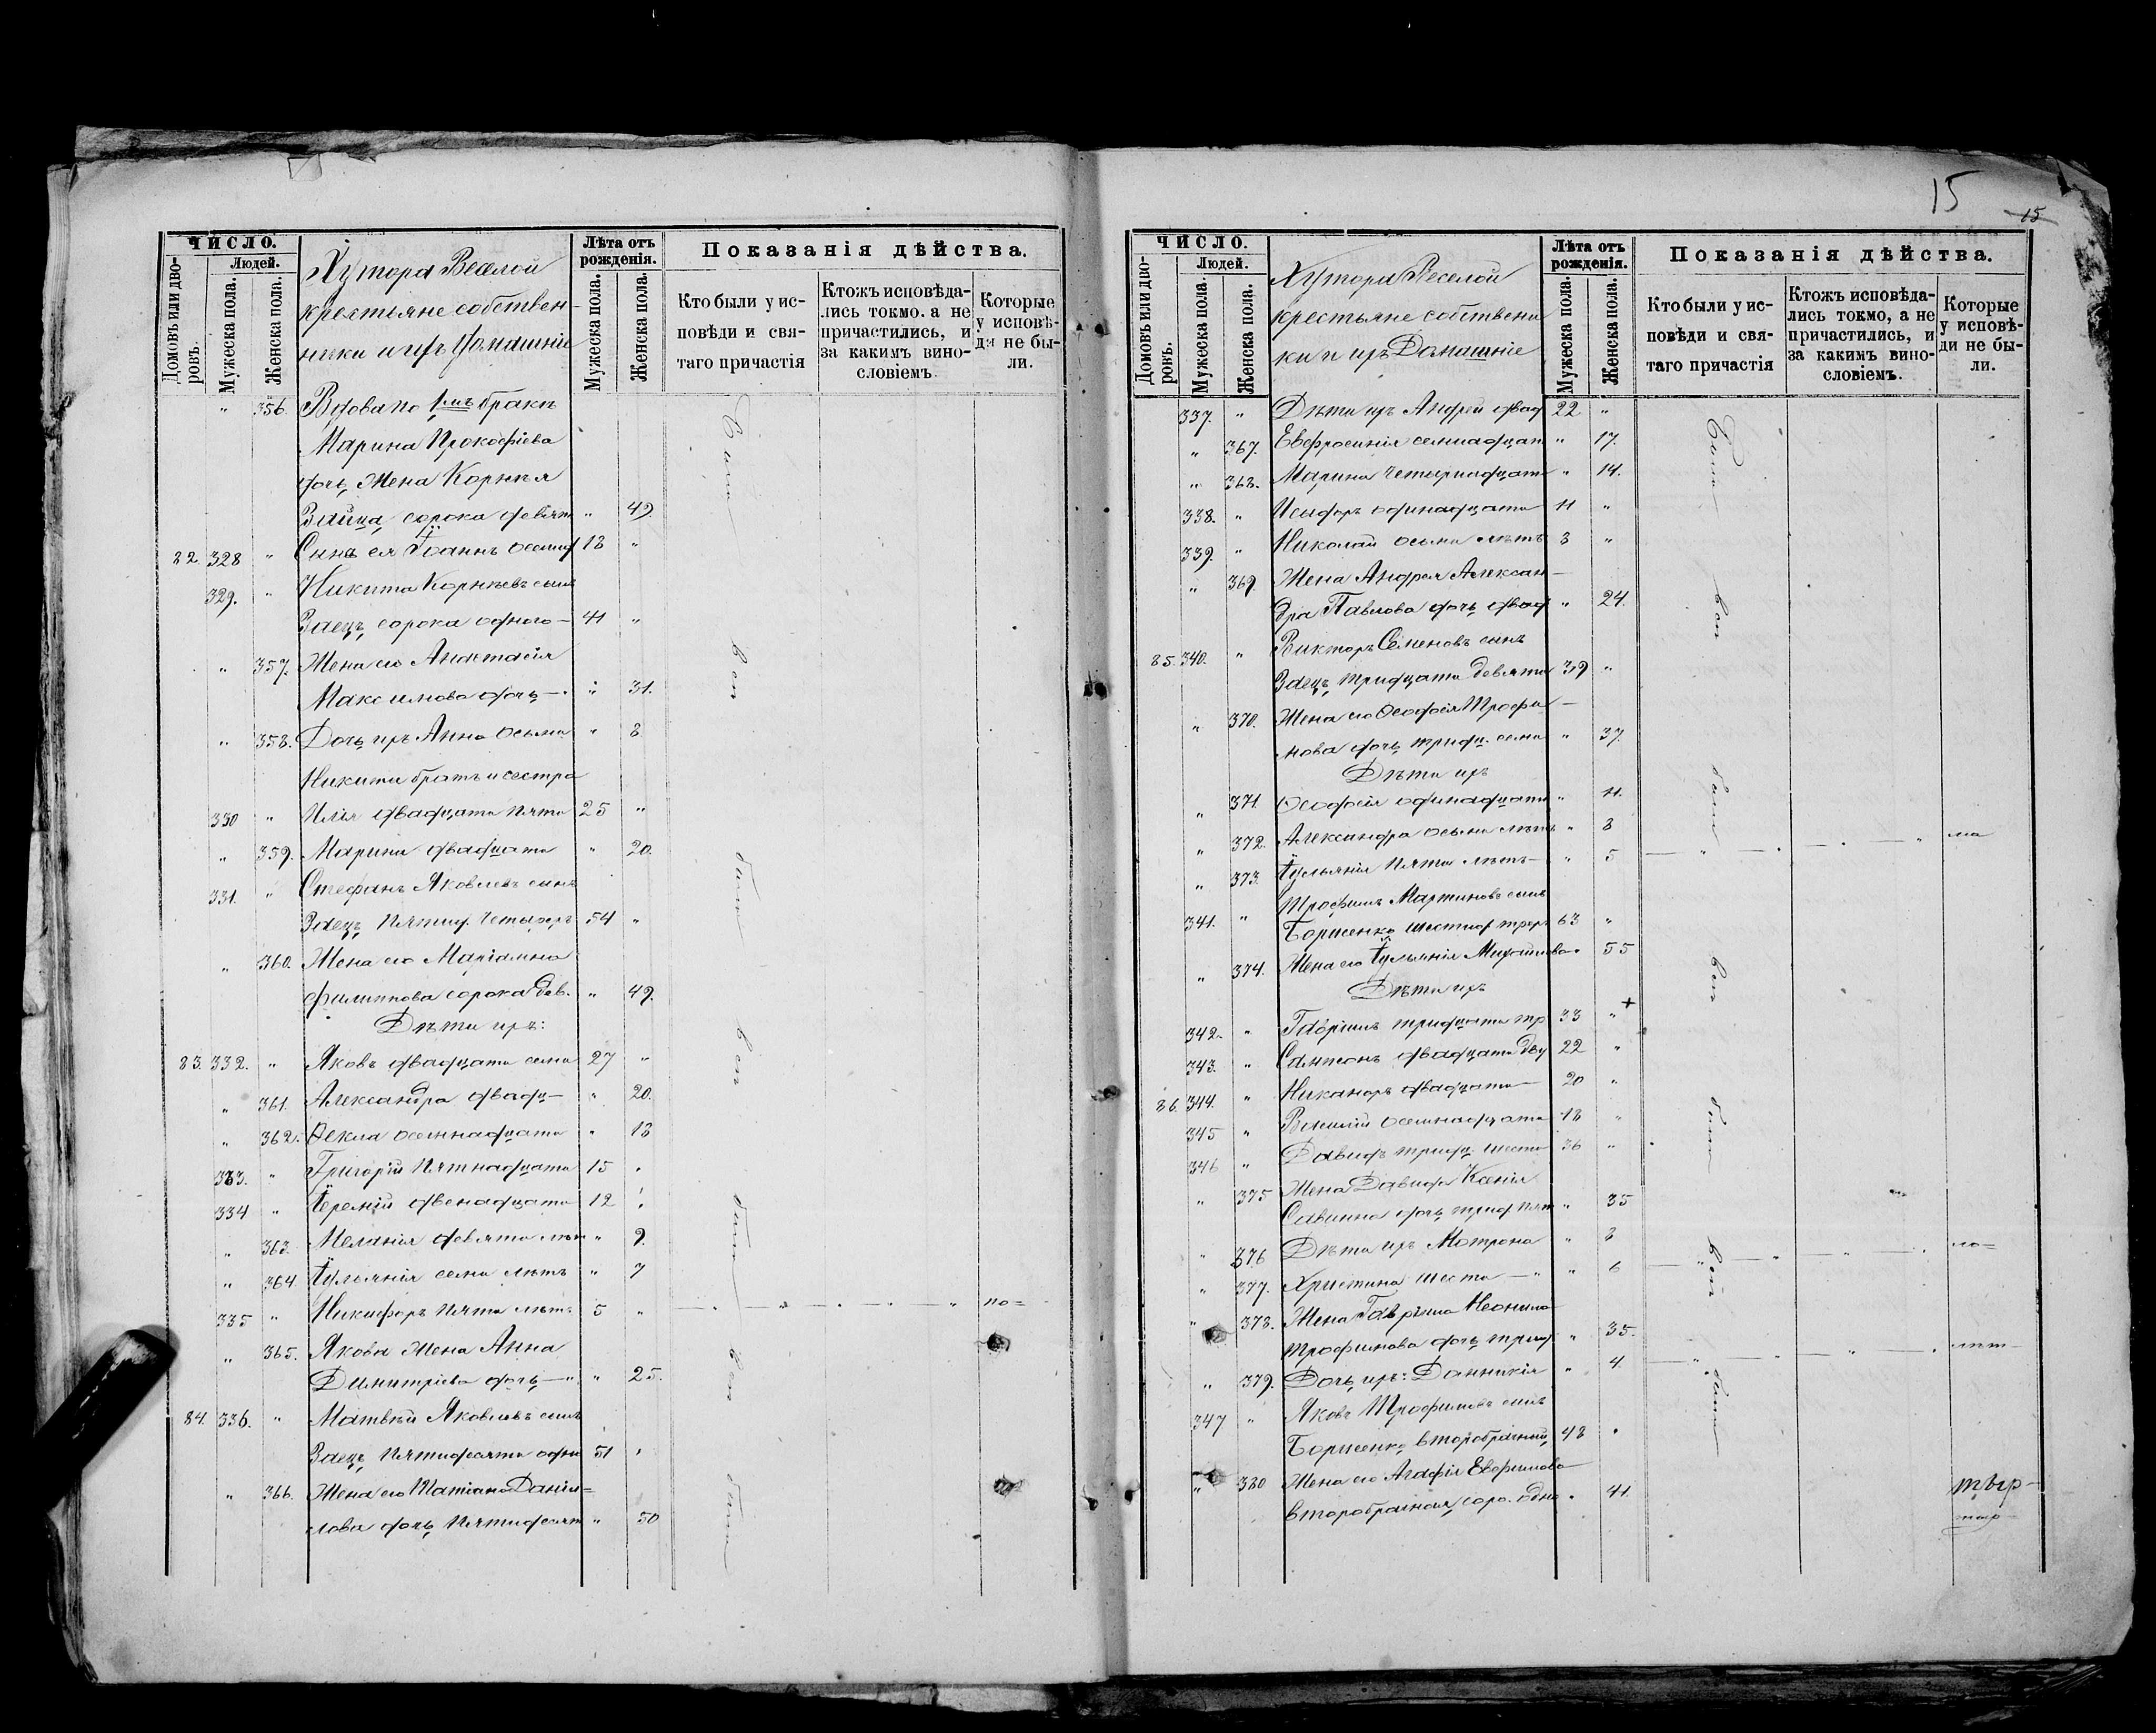 ЧИСЛО.
Людей.
Домовъ или дворовъ.
Мужеска пола.
Женска пола.
Хутора Веселой
крестьяне собствен-
ники и ихъ домашніе
Лѣта отъ рожденія.
Мужеска пола.
Женска пола.
Показанія дѣйства.
Кто были у исповѣди и святаго причастія
Ктожъ исповѣдались токмо, а не причастились, и за какимъ винословіемъ.
Которые у исповѣди не были.
" 356. Вдова по 1мъ бракѣ
Марина Прокофіева
дочь, жена Корнѣя
Зайца, сорока девяти " 49.
82. 328 " Сынъ ея Іоаннъ осемнад 18 "
329. " Никита Корнѣевъ сынъ
Заецъ, сорока одного — 41 "
" 357. Жена его Анастасія
Максимова дочь — " 31.
" 358. Дочь ихъ Анна осьми " 8
Никиты братъ и сестра
330 " Илія двадцати пяти 25 "
" 359. Марина двадцати " 20.
331. " Стефанъ Яковлевъ сынъ
Заецъ, пятид. четырехъ 54 "
" 360. Жена его Маріамна
Филиппова сорока дев. " 49.
Дѣти ихъ:
83. 332. " Яковъ двадцати семи 27 "
" 361. Александра двадц— " 20.
" 362. Ѳекла осемнадцати " 18
333. " Григорій пятнадцати 15 "
334 " Іеремій двенадцати 12 "
" 363. Меланія девяти лѣт " 9.
" 364. Іульянія семи лѣтъ " 7
335 " Никифоръ пяти лѣтъ 5 " по=
" 365. Якова жена Анна
Димитріева дочь — " " 25.
84. 336. " Матвѣй Яковлевъ сынъ
Заецъ, пятидесяти одн 51 "
" 366. Жена его Татіана Даніи=
лова дочь, пятидесят " 50
Были всѣ были всѣ были всѣ были
15
15
ЧИСЛО.
Людей.
Домовъ или дворовъ.
Мужеска пола.
Женска пола.
Хутора Веселой
крестьяне собственни
ки и ихъ домашніе
Лѣта отъ рожденія.
Мужеска пола.
Женска пола.
Показанія дѣйства.
Кто были у исповѣди и святаго причастія
Ктожъ исповѣдались токмо, а не причастились, и за какимъ винословіемъ.
Которые у исповѣди не были.
337. " Дѣти ихъ Андрей двад 22 "
" 367. Евфросинія семнадцат " 17.
" 368. Марина четырнадцати " 14.
338. " Исидоръ одинадцати 11 "
339. " Николай осьми лѣтъ 8 "
" 369. Жена Андрея Алексан—
дра Павлова дочь двад " 24.
85. 340. " Викторъ Семеновъ сынъ
Заецъ, тридцати девяти 39 "
" 370. Жена его Ѳеодосія Трофи—
мова дочь тридц. семи " 37.
Дѣти ихъ
" 371. Ѳеодосія одинадцати " 11.
" 372. Александра осьми лѣтъ " 8 ма
" 373. Іульянія пяти лѣтъ — " 5
341. " Трофимъ Мартиновъ сынъ
Борисенко шестид трехъ 63 "
" 374. Жена его Іульянія Михайлова " 55
Дѣти ихъ
342. " Гавріилъ тридцати тр 33 " +
343. " Сампсонъ двадцати дву 22 "
86. 344. " Никаноръ двадцати — 20 "
345 " Василій осемнадцати 18 "
346 " Давидъ тридц. шести 36 "
" 375 Жена Давида Ксенія
Саввина дочь, трид пят " 35
" 376 Дѣти ихъ Матрона " 8 ло=
" 377. Христина шести — " " 6
" 378. Жена Гавріила Неонила
Трофимова дочь трид. " 35.
" 379. Дочь ихъ: Домникія " 4. лѣт—
347 " Яковъ Трофимовъ сынъ
Борисенко второбрачный, 48 "
" 380 Жена его Агафія Евфимова
второбрачная, соро. одно " 41.
Были всѣ были всѣ были всѣ были